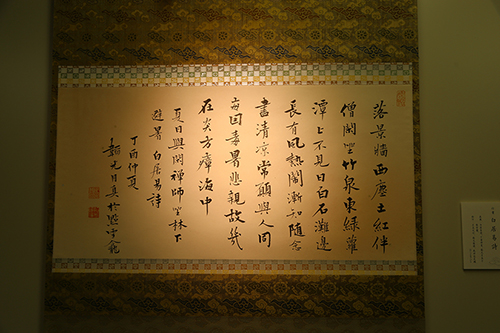 落景牆西塵土紅伴
僧閑坐竹泉東綠蘿
潭上不見日白石灘邊
長有風熱鬧漸知隨念
盡清涼常願與人同
每因毒暑悲親故幾
在炎方瘴海中
夏日與閑禪師坐林下
避暑 白居易詩
丁酉仲夏